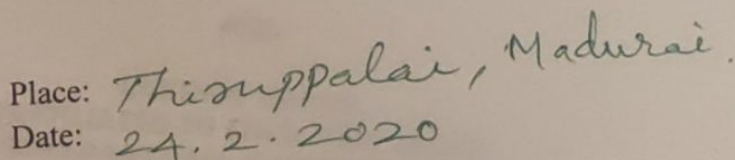 Place: Thiruppalai, Madurai.
Date: 24.2.2020